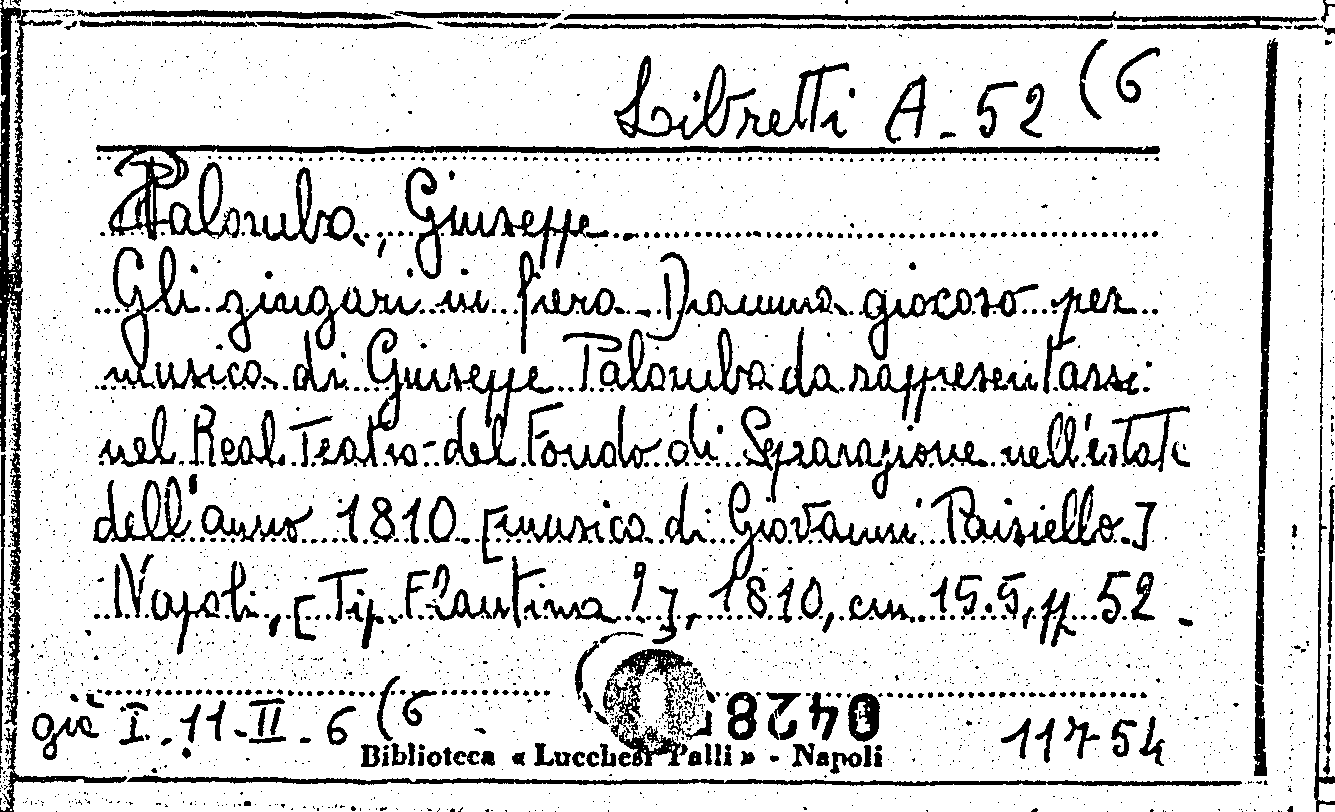 Libretti A - 52 (6
Palomba, Giuseppe.
Gli zingari in fiera - Dramma giocoso per
musica di Giuseppe Palomba da rappresentarsi
nel Real Teatro del Fondo di Separazione nell'estate
dell'anno 1810 [musica di Giovanni Paisiello.]
Napoli, [Tip. Flautina?], 1810, cm. 15.5, pp 52.
già I - 11 - II - 6 (6
0428
11754
Biblioteca « Lucchesi Palli » - Napoli